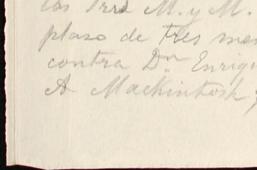 los Srrs M. y M.
plaso de tres mes
contra Dn Enriq
A Mackintosh y